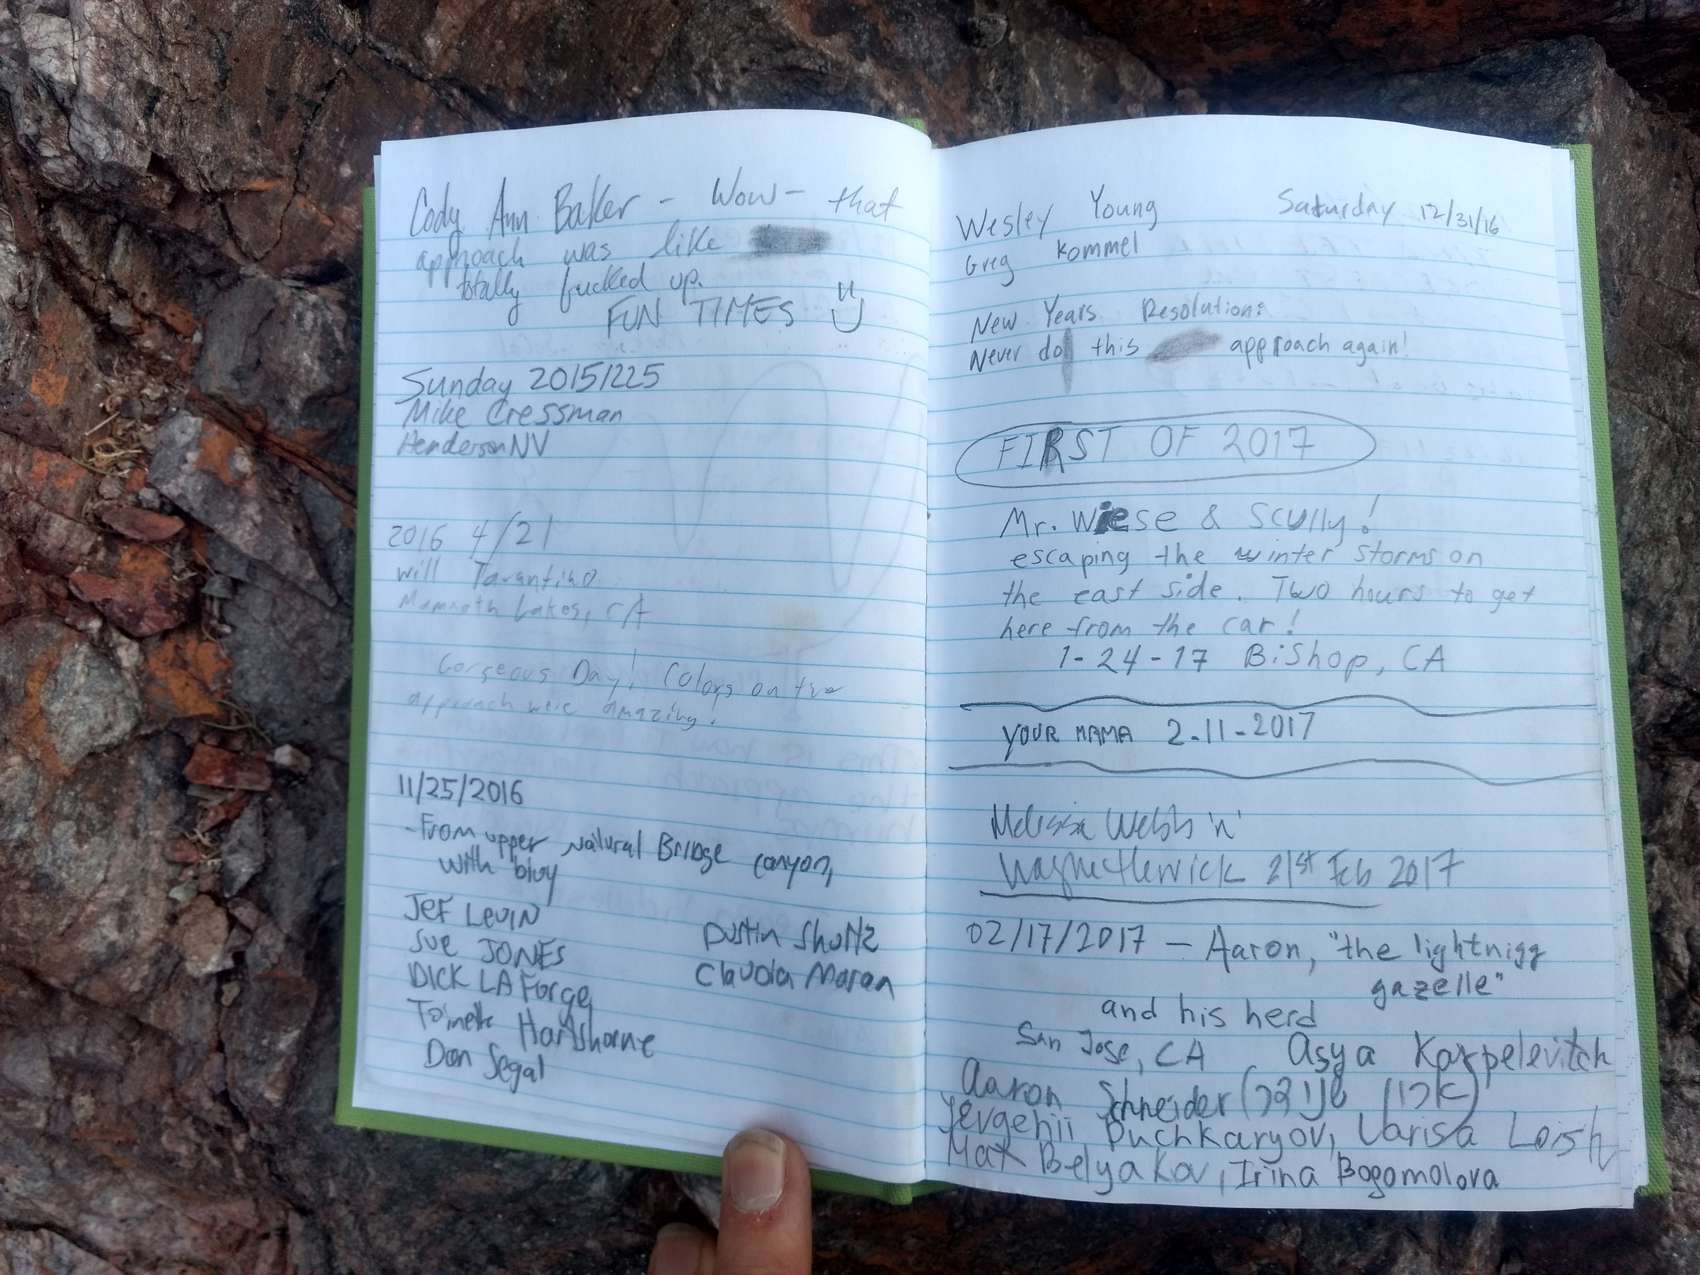 Cody Ann Baker - Wow - that
approach was like
totally fucked up.
FUN TIMES
Sunday 20151225
Mike Cressman
Henderson NV
2016 4/21
Will Tarantino
Mammoth Lakes, CA
Gorgeous Day! Colors on the
approach were amazing.
11/25/2016
-From upper Natural Bridge canyon,
with bivy
JEF LEVIN
SUE JONES
DICK LA Forge
To'mette Hartshorne
Dan Segal
Dustin Shultz
Claudia Maran
Wesley Young Saturday 12/31/16
Greg Kommel
New Years Resolution:
Never do this approach again!
FIRST OF 2017
Mr. Wiese & Scully!
escaping the winter storms on
the east side. Two hours to get
here from the car!
1-24-17 Bishop, CA
YOUR MAMA 2-11-2017
Melissa Webb 'n'
Wayne Herrick 21st Feb 2017
02/17/2017 - Aaron, "the lightnigg
gazelle"
and his herd
San Jose, CA Asya Karpelevitch
Aaron Schneider
Yevgehii Puchkaryov, Varisa Loish
Max Belyakov, Irina Bogomolova